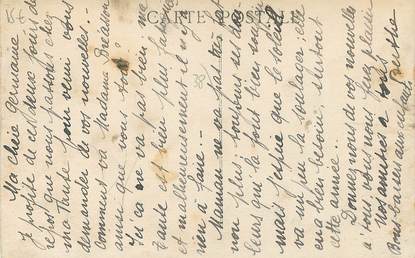 CARTE POSTALE
Ma chère Germaine
Je profite de ces deux jours de
repos que nous passons chez
ma Tante pour venir vous
demander de vos nouvelles.-
Comment va Madame
ainsi que vous tous
Ici ça ne va pas bien ma
Tante est bien plus fatiguée
et malheureusement il n'y a
rien à faire.-
Maman ne va pas très fort
non plus, toujours ses dou-
leurs qui la font bien souffrir
mais j'espère que le soleil
va un peu la soulager, elle
en a bien besoin, surtout
cette année.-
Donnez nous de vos nouvelles
à tous, vous nous ferez plaisir
Nos amitiés à tous
Bons baisers aux enfants Berthe